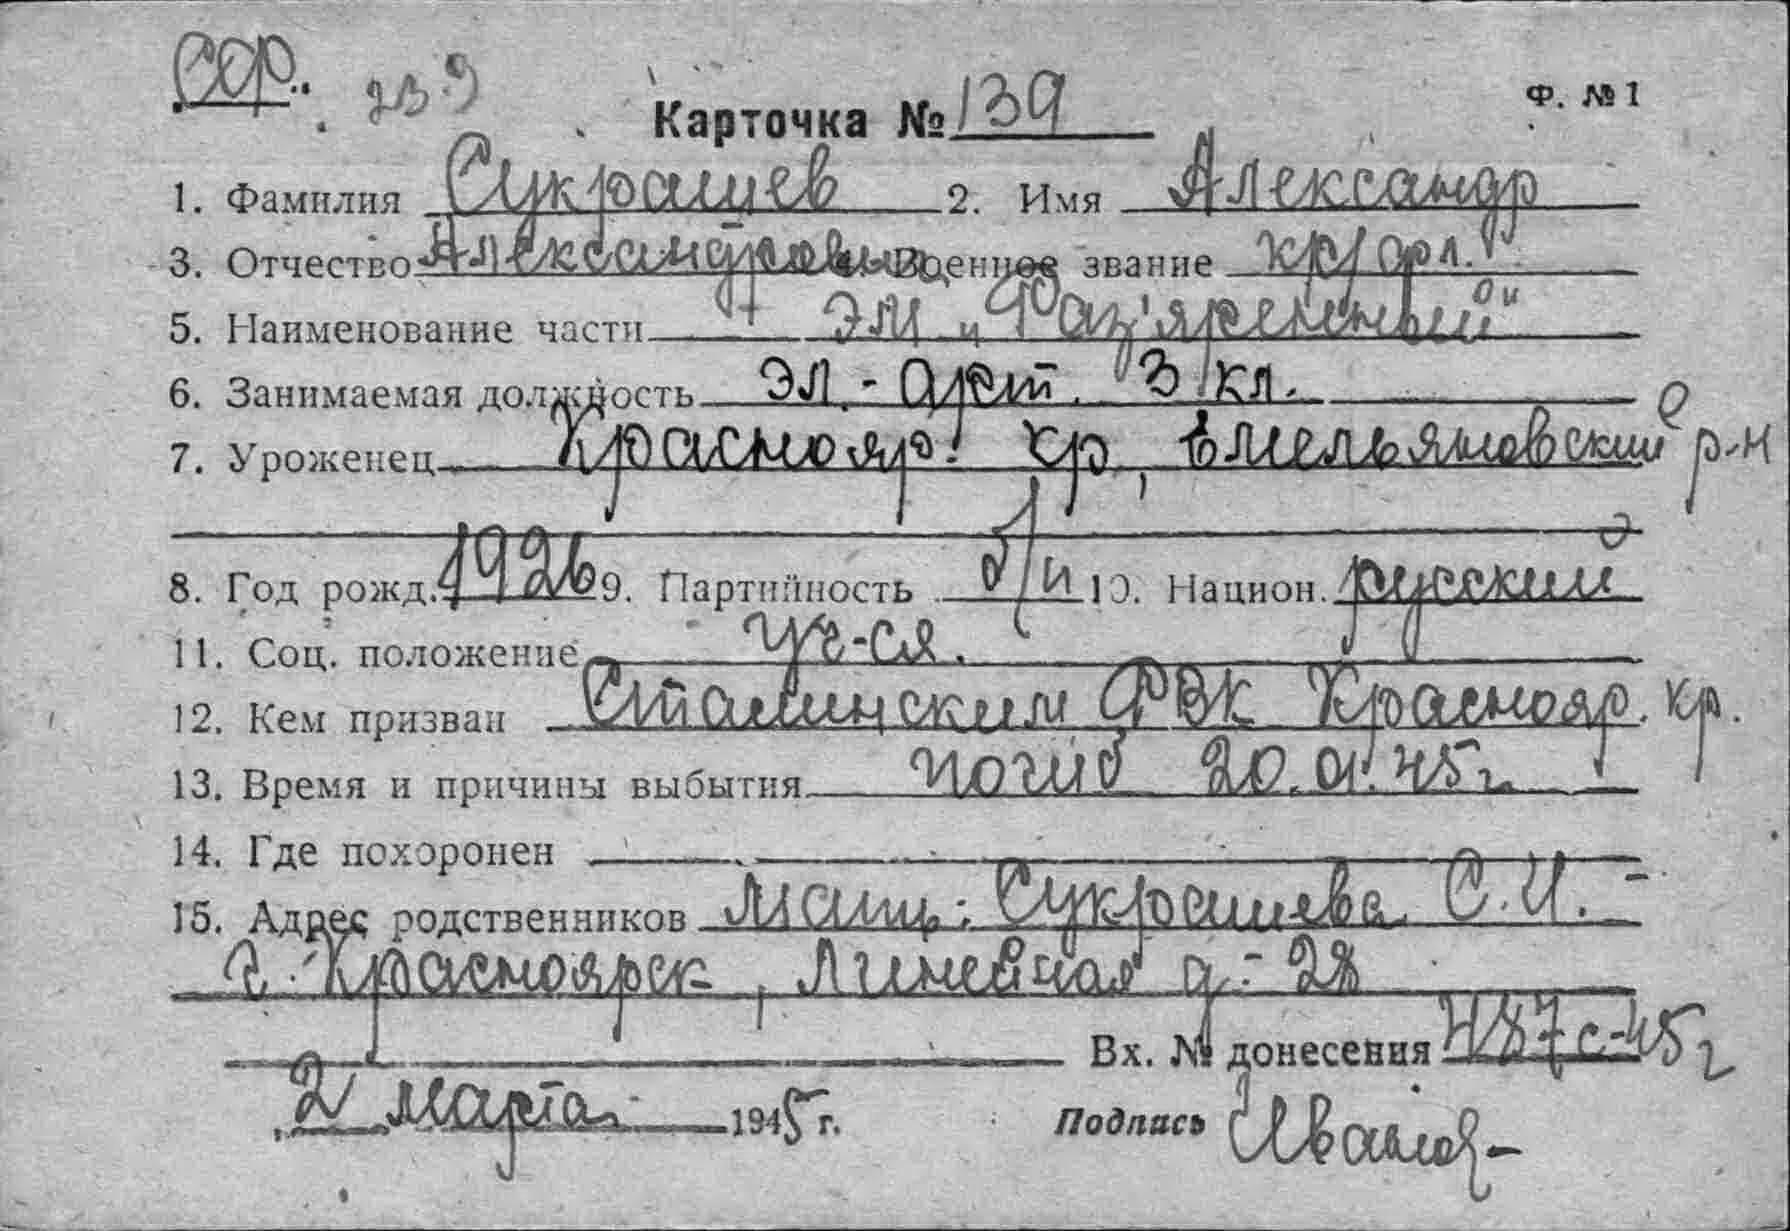 СФ. 239
Карточка № 139 Ф. № 1
1. Фамилия Сукрашев 2. Имя Александр
3. Отчество Александрович Военное звание кр/фл.
5. Наименование части ЭМ „Раз'яренный"
6. Занимаемая должность эл.-арт. 3 кл.
7. Уроженец Краснояр. кр, Емельяновский р-н
8. Год рожд. 1926 9. Партийность б/п 10. Национ. русский
11. Соц. положение уч-ся.
12. Кем призван Сталинским РВК Краснояр. кр.
13. Время и причины выбытия погиб 20.01.45 г
14. Где похоронен
15. Адрес родственников Мать: Сукрашева С. И. -
г. Красноярск, Линейная д-28
Вх. № донесения 487с-45г
2 марта 1945 г.
Подпись Иванов